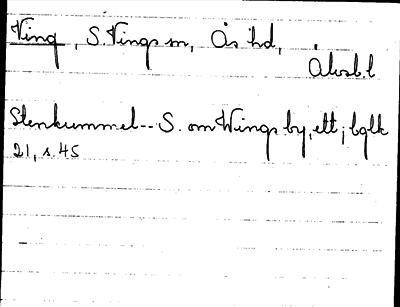 Ving, S. Vings sn, Ås hd,
Älvsb. l
Stenkummel -- S. om Wings by, ett; bglk
21, s. 45